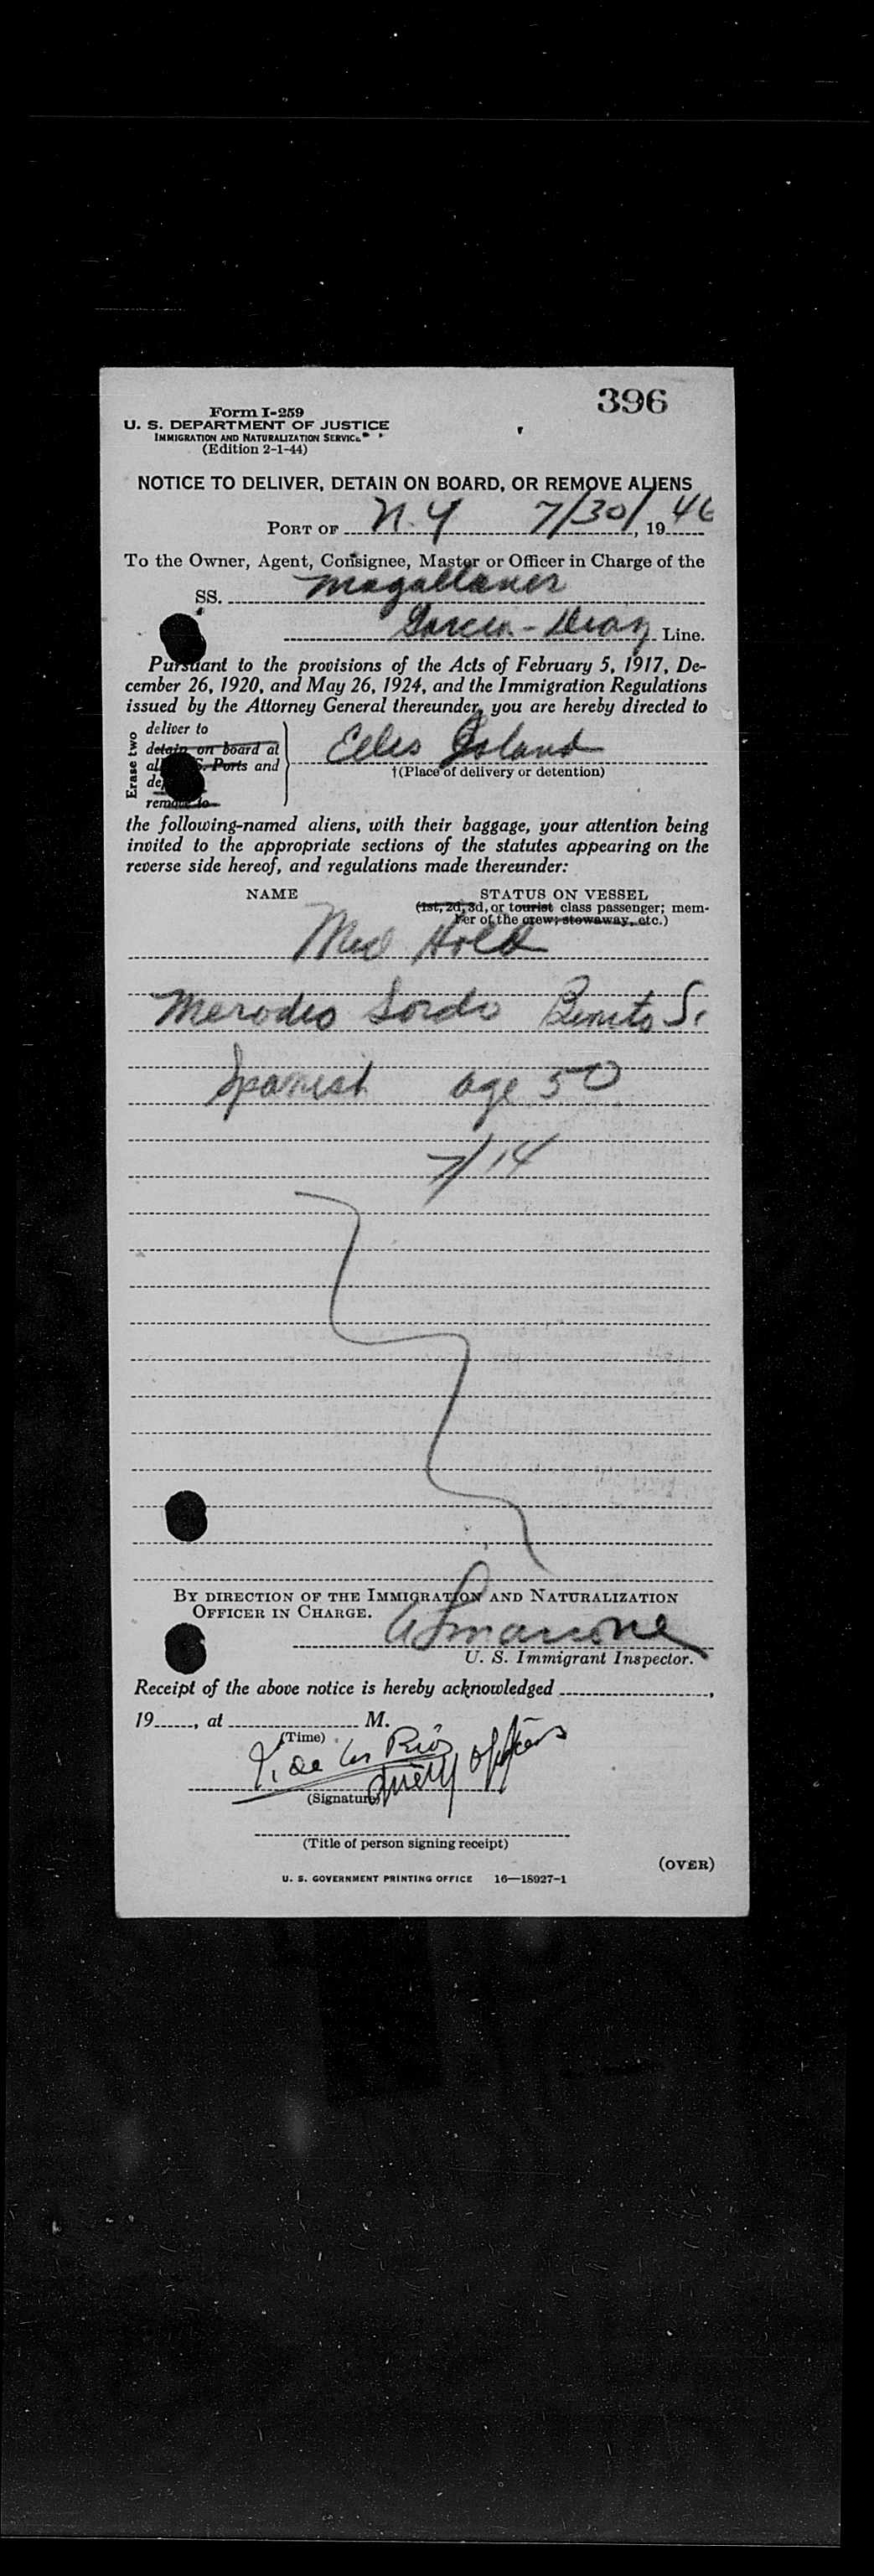 396
Form I-259
U. S. DEPARTMENT OF JUSTICE
IMMIGRATION AND NATURALIZATION SERVICE
(Edition 2-1-44)
NOTICE TO DELIVER, DETAIN ON BOARD, OR REMOVE ALIENS
PORT OF N.Y 7/30/, 1946
To the Owner, Agent, Consignee, Master or Officer in Charge of the
SS. Magallanes
Garcia-Diaz Line.
Pursuant to the provisions of the Acts of February 5, 1917, De-
cember 26, 1920, and May 26, 1924, and the Immigration Regulations
issued by the Attorney General thereunder, you are hereby directed to
Erase two
deliver to
detain on board at
all U.S. Ports and
remove to
Ellis Island
†(Place of delivery or detention)
the following-named aliens, with their baggage, your attention being
invited to the appropriate sections of the statutes appearing on the
reverse side hereof, and regulations made thereunder:
NAME STATUS ON VESSEL
(1st, 2d, 3d, or tourist class passenger; mem-
ber of the crew; stowaway, etc.)
Med Hold
Merodio Sordo Benito S.
Spanish age 50
7/14
BY DIRECTION OF THE IMMIGRATION AND NATURALIZATION
OFFICER IN CHARGE.
U. S. Immigrant Inspector.
Receipt of the above notice is hereby acknowledged
19, at M.
(Time)
de los Rios
officers
(Signature)
(Title of person signing receipt)
(OVER)
U. S. GOVERNMENT PRINTING OFFICE 16—18927-1